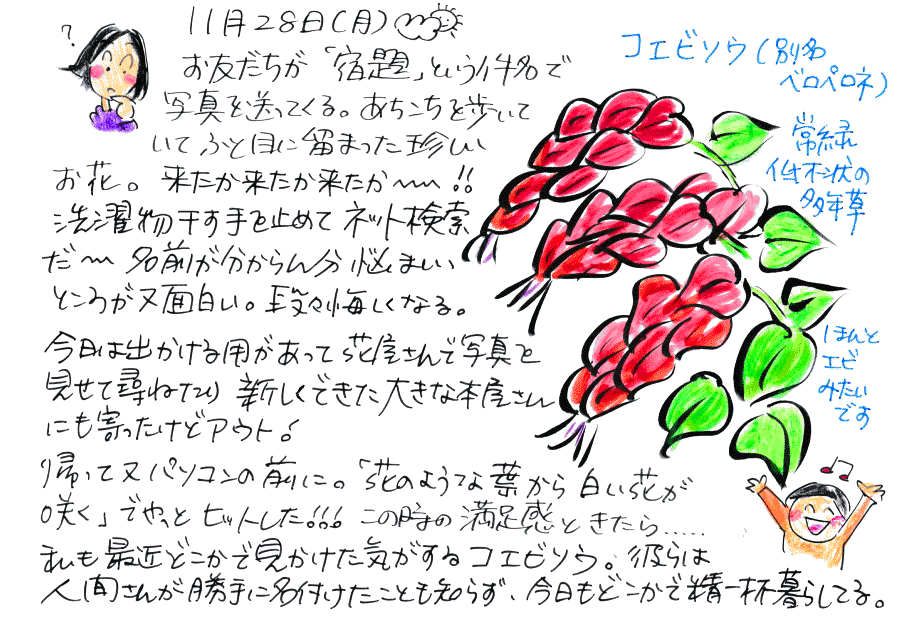 11月28日(月)
お友だちが「宿題」という件名で
写真を送ってくる。あちこちを歩いて
いてふと目に留まった珍しい
お花。来たか来たか来たか〜!!
洗濯物干す手を止めてネット検索
だ〜 名前が分からん分悩ましい
ところが又面白い。段々悔しくなる。
今日は出かける用があって花屋さんで写真を
見せて尋ねたり 新しくできた大きな本屋さん
にも寄ったけどアウト!
帰って又パソコンの前に。「花のような葉から白い花が
咲く」でやっとヒットした!!! この時の満足感ときたら……
私も最近どこかで見かけた気がするコエビソウ。彼らは
人間さんが勝手に名付けたことも知らず、今日もどこかで精一杯暮らしてる。
コエビソウ(別名
ベロペロネ)
常緑
低木状の
多年草
ほんと
エビ
みたい
です
?